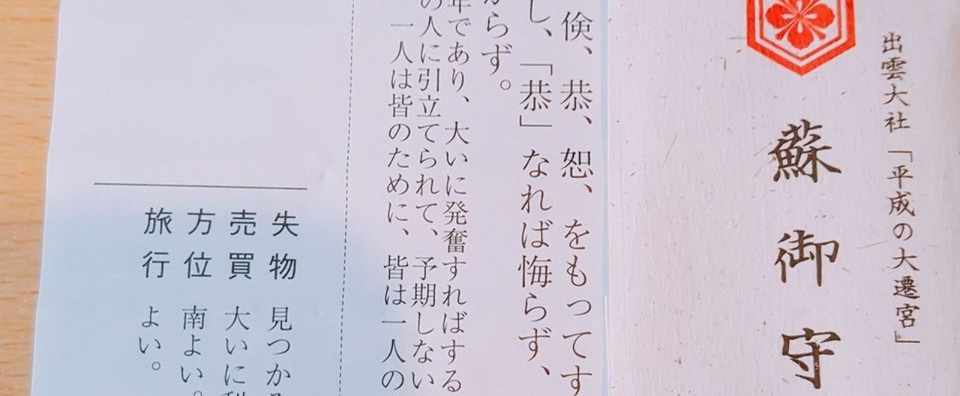 出雲大社「平成の大遷宮」
蘇御守
倹、恭、恕、をもってす
し、「恭」なれば悔らず、
からず。
年であり、大いに発奮すればする
の人に引立てられて、予期しない
一人は皆のために、皆は一人の
失物 見つか
売買 大いに利
方位 南よい。
旅行 よい。